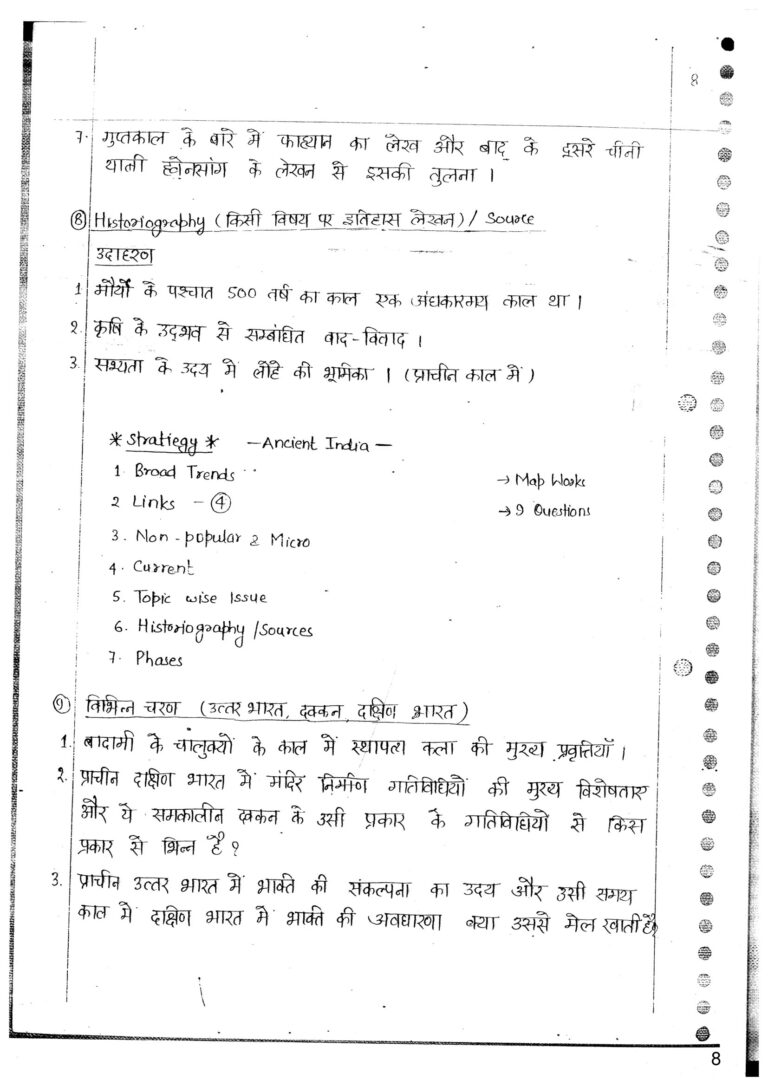 8
7. गुप्तकाल के बारे में फाह्यान का लेख और बाद के दूसरे चीनी
यात्री ह्वेनसांग के लेखन से इसकी तुलना ।
⑧ Historiography (किसी विषय पर इतिहास लेखन) / Source
उदाहरण
1 मौर्यों के पश्चात 500 वर्ष का काल एक अंधकारमय काल था ।
2. कृषि के उद्भव से सम्बंधित वाद-विवाद ।
3. सभ्यता के उदय में लोहे की भूमिका । (प्राचीन काल में)
* Stratiegy * — Ancient India —
1. Broad Trends → Map Works
2 Links - ④ → 9 Questions
3. Non-popular & Micro
4. Current
5. Topic wise Issue
6. Historiography /Sources
7. Phases
⑨ विभिन्न चरण (उत्तर भारत, दक्कन, दक्षिण भारत)
1. बादामी के चालुक्यों के काल में स्थापत्य कला की मुख्य प्रवृत्तियाँ ।
2. प्राचीन दक्षिण भारत में मंदिर निर्माण गतिविधियों की मुख्य विशेषताए
और ये समकालीन दक्कन के उसी प्रकार के गतिविधियो से किस
प्रकार से भिन्न है ?
3. प्राचीन उत्तर भारत में भक्ति की संकल्पना का उदय और उसी समय
काल में दक्षिण भारत में भक्ति की अवधारणा क्या उससे मेल खाती है
8